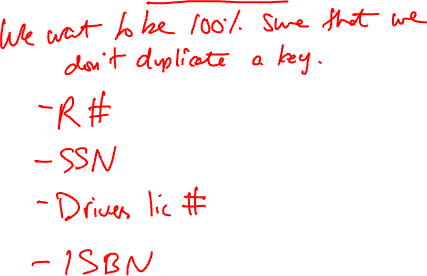 We want to be 100% sure that we
don't duplicate a key.
- R #
- SSN
- Drivers lic #
- ISBN